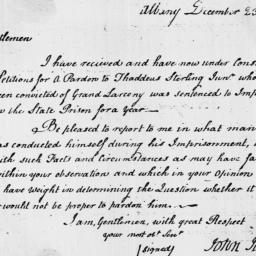 Albany December 23
tlemen
I have recieved and have now under Cons
Petitions for a Pardon to Thaddeus Sterling Junr. who
een convicted of Grand Larceny was sentenced to Imp
the State Prison for a Year
Be pleased to report to me in what man
as conducted himself during his Imprisonment,
ith such Facts and Circumstances as may have fa
ithin your observation and which in your Opinion
have weight in determining the Question whether it
would not be proper to pardon him.
I am, Gentlemen, with great Respect
your most ob. Servt.
(signed) John